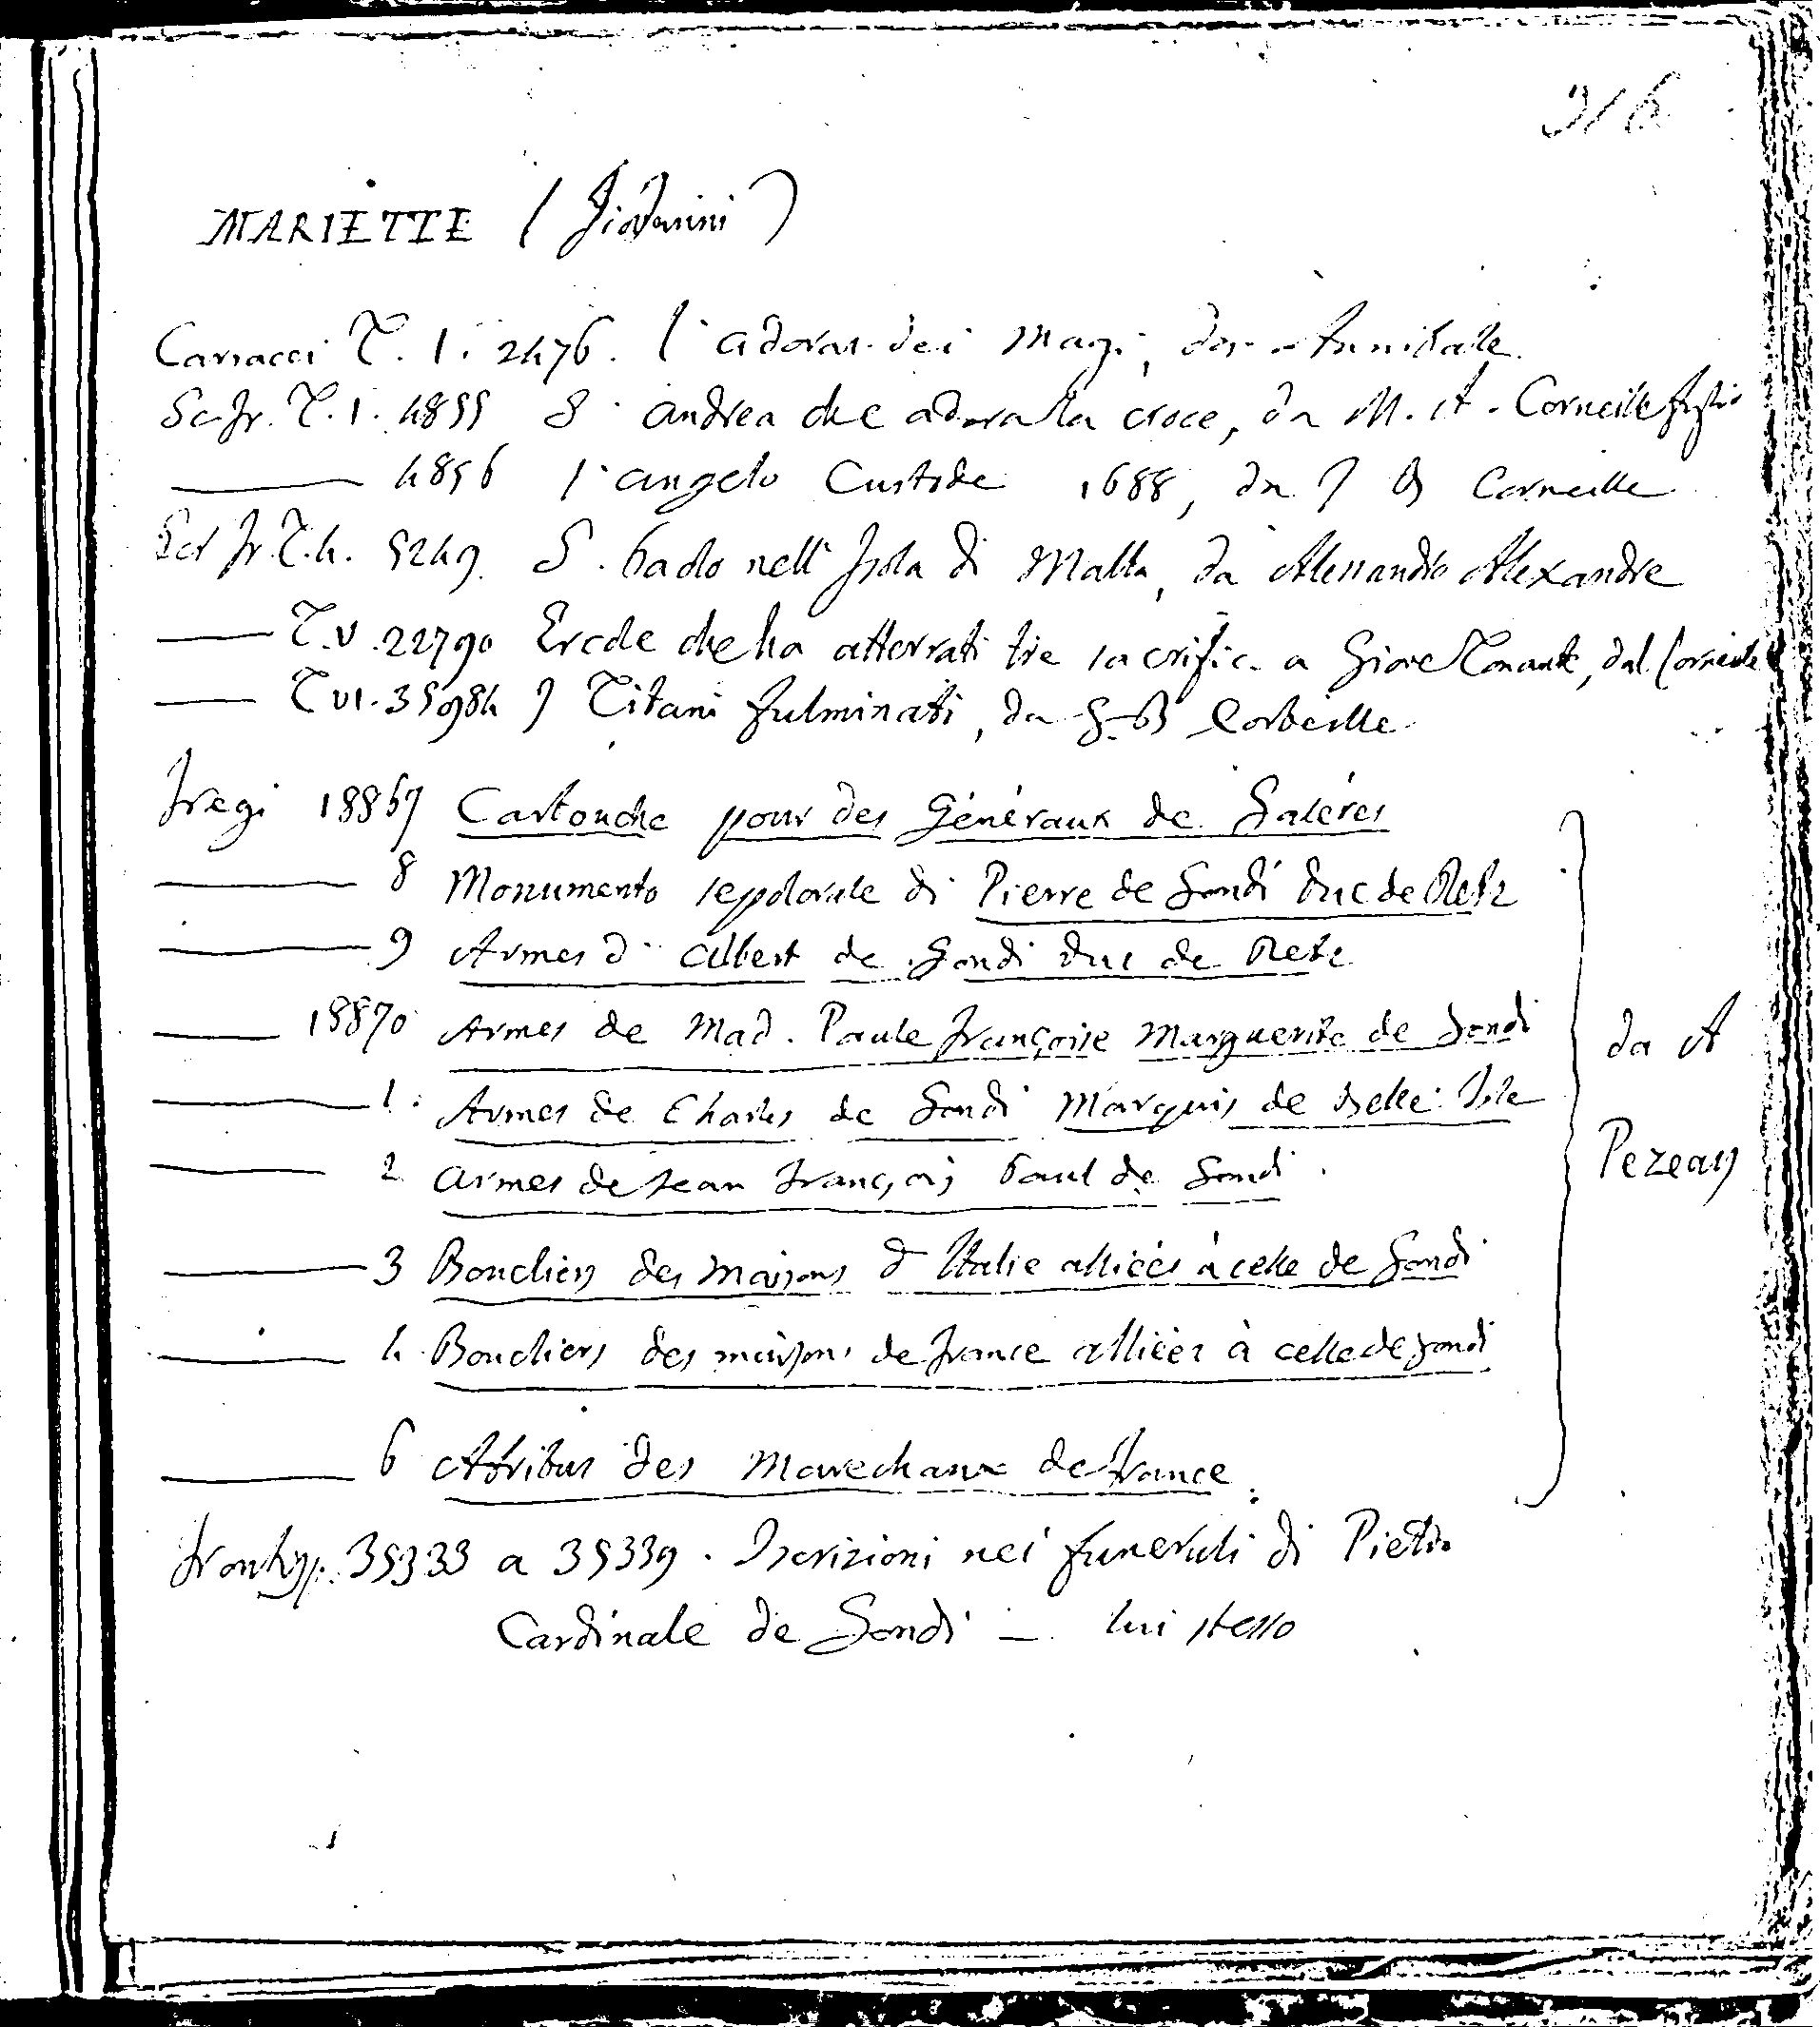 316
MARIETTE (Giovanni)
Carracci T. 1. 2476. l'adoraz. dei Magi, da Annibale
Sc. fr. T. 1. 4855 S. Andrea che adora la croce, da M. A. Corneille
4856 l'angelo Custode 1688, da G B Corneille
Scl fr. T. 4. 5249. S. Paolo nell'Isola di Malta, da Alessandro Alexandre
T. V. 22790 Ercole che ha atterrati tre sacrific. a Giove Tonante, dal Corneille
T VI. 35984 I Titani fulminati, da G-B Corneille
Fregi 18867 Cartouche pour des Généraux de Galéres
8 Monumento sepolcrale di Pierre de Gondi Duc de Retz
9 Armes d'Albert de Gondi Duc de Retz
18870 Armes de Mad. Paule Françoise Marguerite de Gondi
1. Armes de Charles de Gondi Marquis de Belle Isle
2 Armes de Jean François Paul de Gondi
3 Boucliers des Maisons d'Italie alliées à celle de Gondi
4. Boucliers des maisons de France alliées à celle de Gondi
6 Atribus des Marechaux de France
da A
Pezeay
Frontisp. 35333 a 35339. Iscrizioni nei funerali di Pietro
Cardinale de Gondi — lui stesso